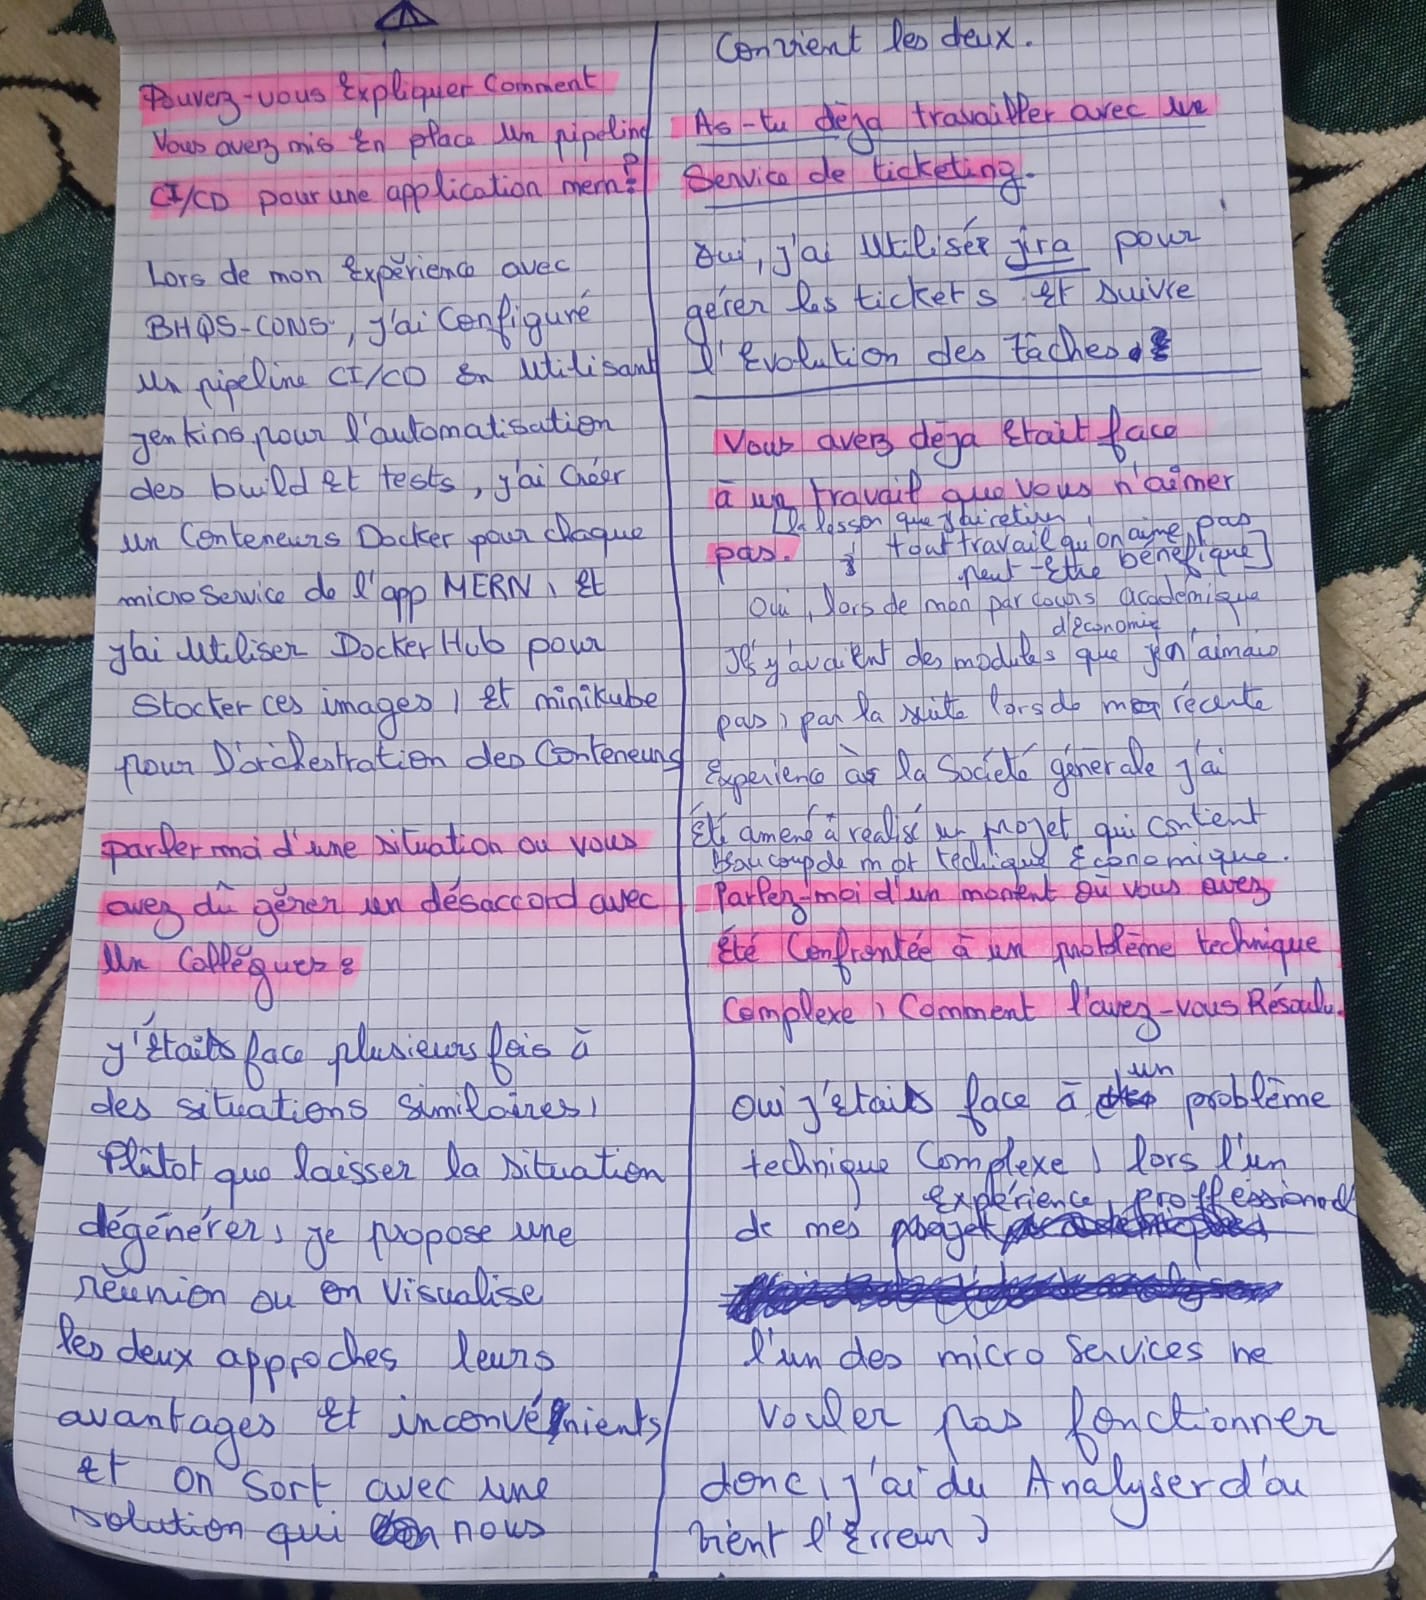 Pouvez-vous Expliquer Comment
Vous avez mis En place un pipeline
CI/CD pour une application mern?
Lors de mon Expérience avec
BHQS-CONS, j'ai Configuré
un pipeline CI/CD En utilisant
jenkins pour l'automatisation
des build Et tests, j'ai Créer
un Conteneurs Docker pour chaque
micro Service de l'app MERN, Et
j'ai utiliser DockerHub pour
Stocter ces images, Et minikube
pour D'orchestration des Conteneurs
parler moi d'une situation ou vous
avez dû gérer un désaccord avec
Un Collégues
j'étaits face plusieurs fois à
des situations similaires,
Plûtot que laisser la situation
dégénérer, je propose une
réunion ou on Visualise
les deux approches leurs
avantages Et inconvénients
Et on sort avec une
solution qui nous
Convient les deux.
As-tu déja travailler avec un
Service de ticketing.
Oui, j'ai Utiliser jira pour
gérer les tickets Et suivre
l'Evolution des tâches.
Vous avez déja Etait face
à un travail que vous n'aimer
pas.
[la lesson que j'ai retire,
tout travail qu'on aime pas
peut-Etre bénéfique]
Oui, lors de mon parcours académique
Ils y avaient des modules d'économie que je n'aimais
pas, par la suite lors de récente
Experience à la Société générale j'ai
Eté amené à réalisé un projet qui contient
beaucoup de mot techique Economique.
Parlez-moi d'un moment où vous avez
Eté Confrontée à un problème technique
Complexe, Comment l'avez-vous Résoulu.
Oui j'étaits face à un problème
technique Complexe, lors l'un
de mes expérience proffessionnel
l'un des micro Services ne
vouler pas fonctionner
donc, j'ai du Analyser d'ou
vient l'Erreur,